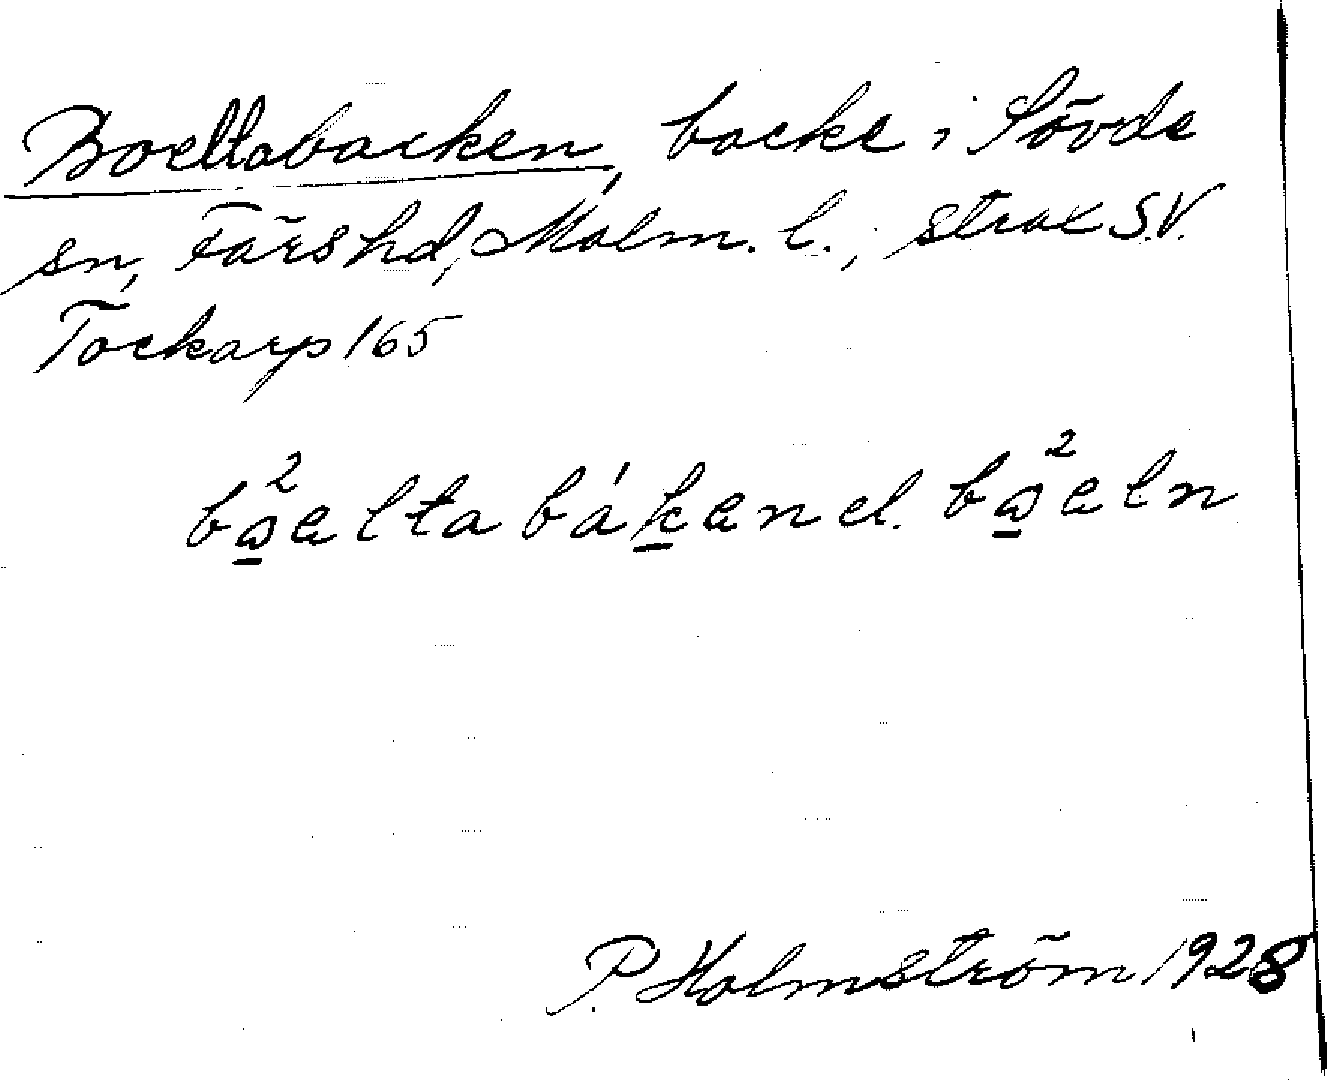 Boeltabacken, backe i Sövde
sn, Färs hd, Malm. l., strax S.V.
Tockarp 165
bɷ²elta bákæn el. bɷ²eln
P. Holmström 1928